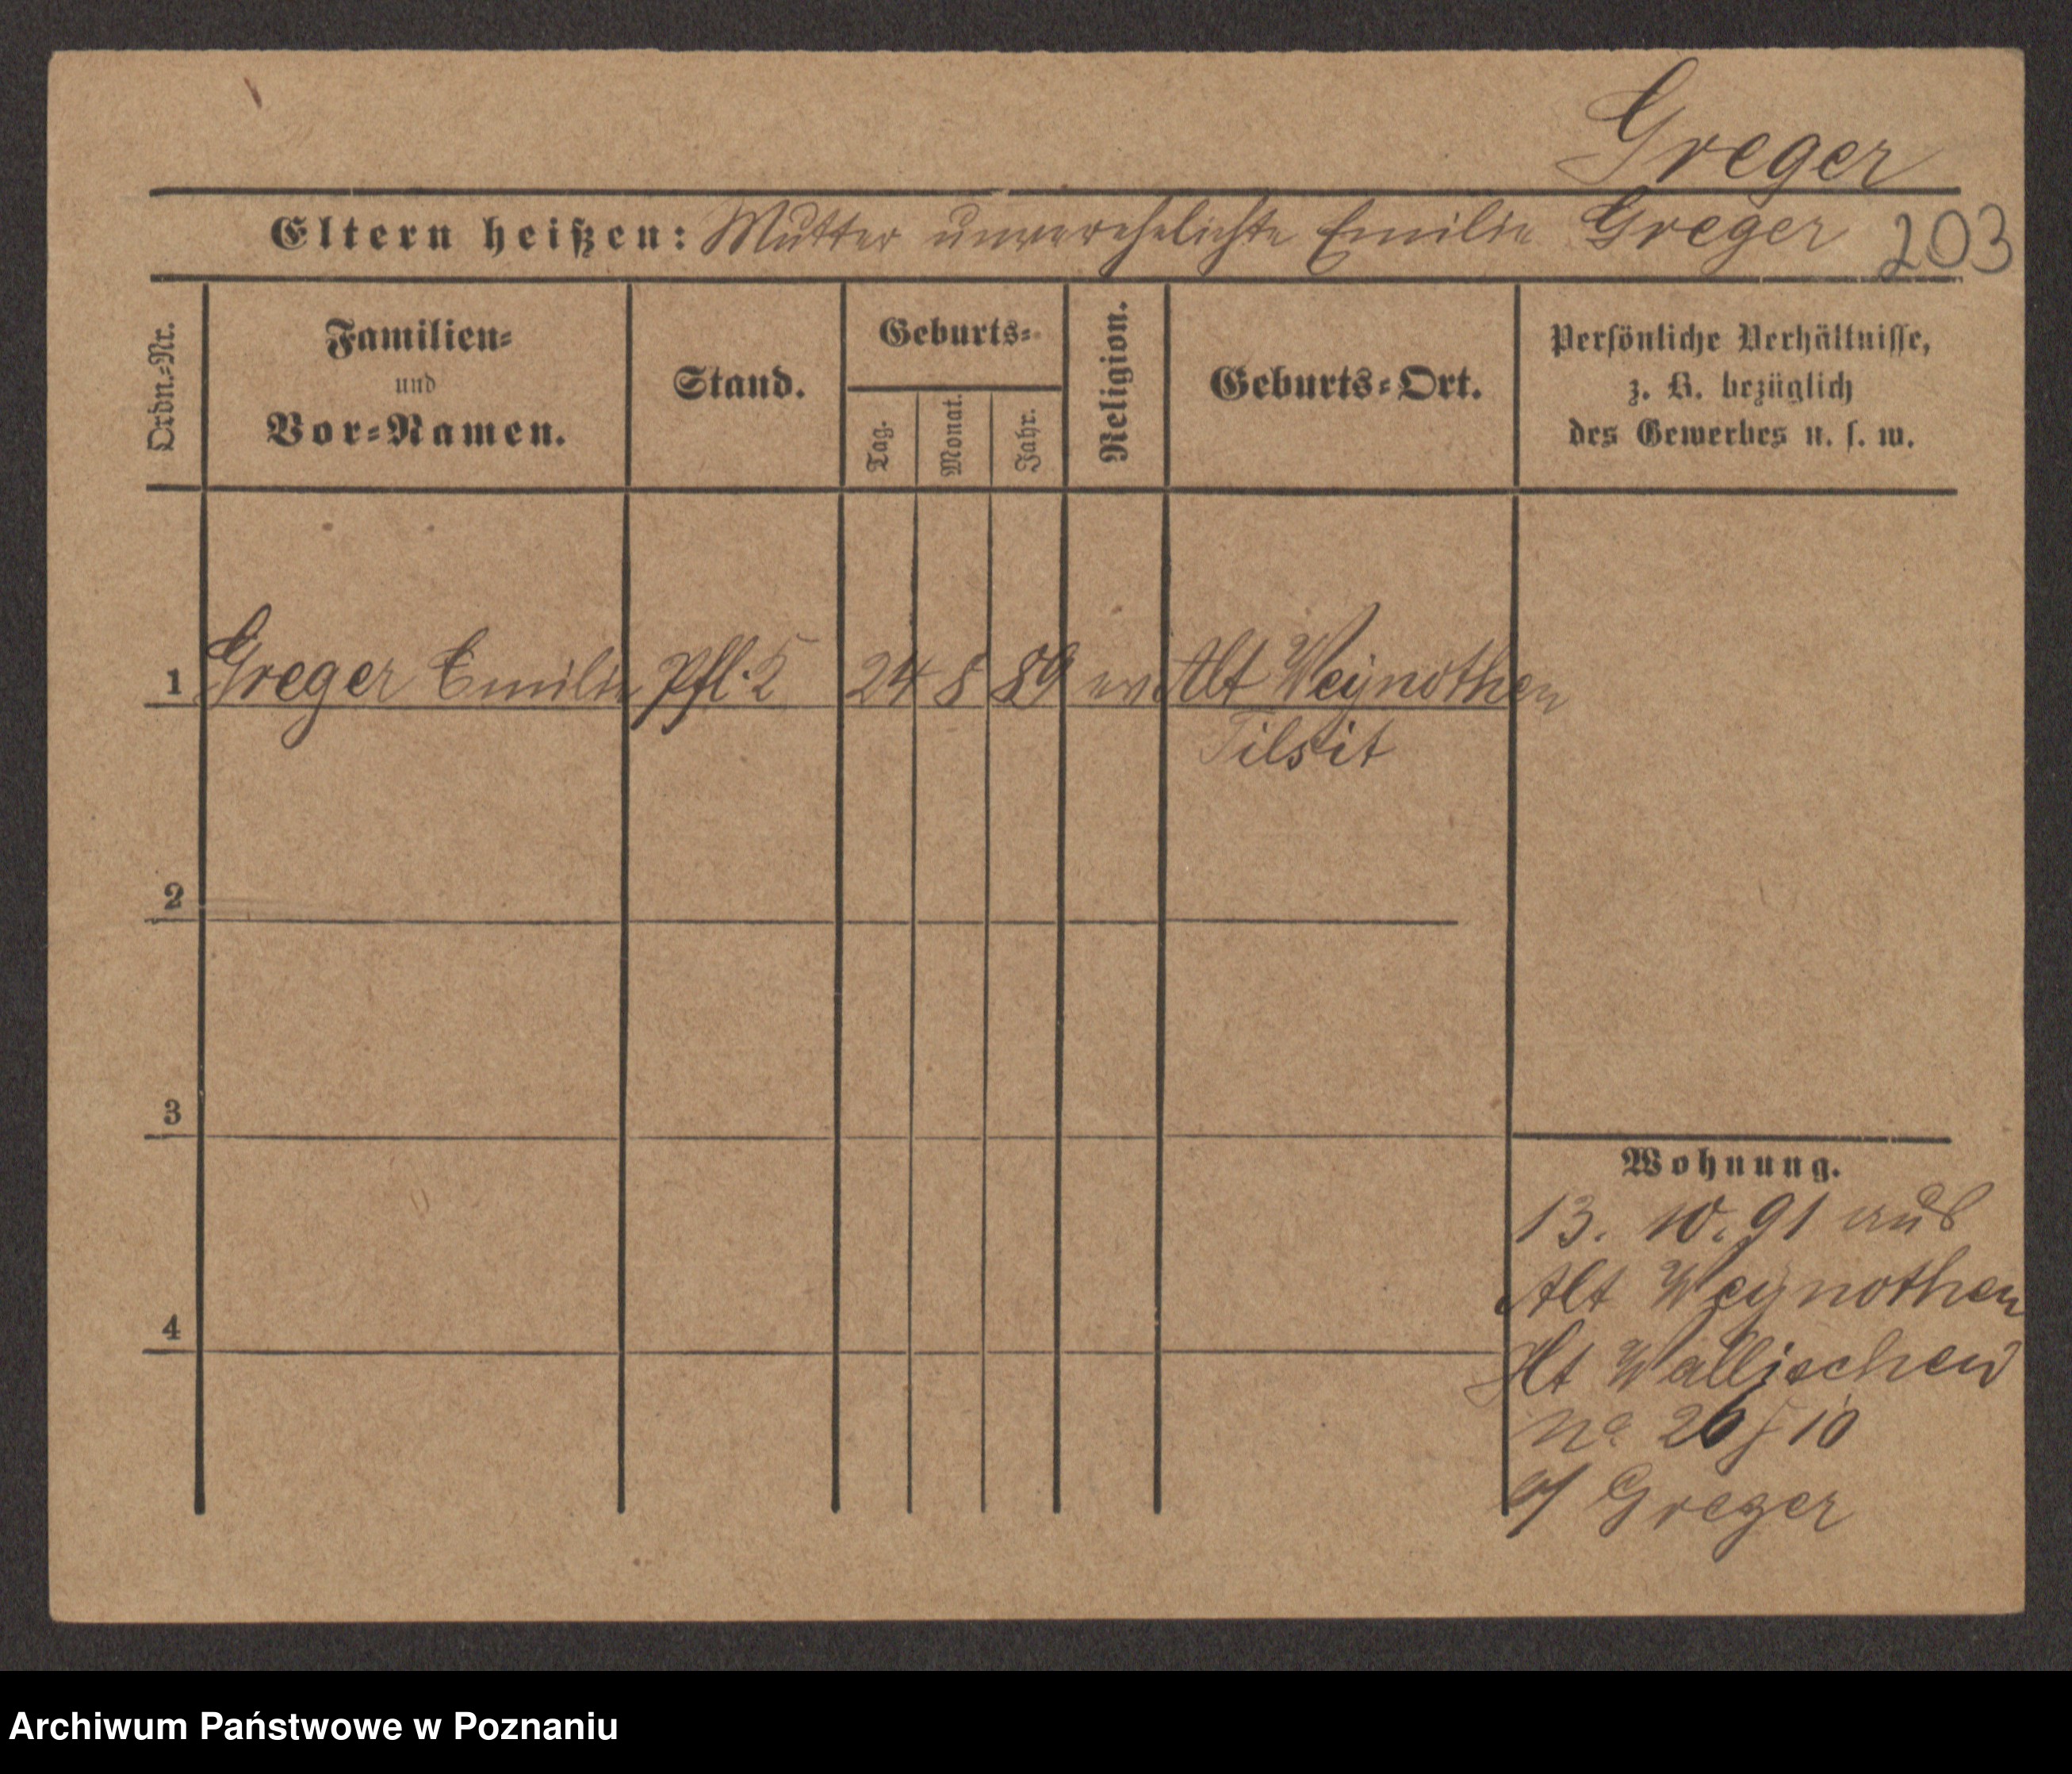 Greger
Eltern heißen: Mutter unverehelichte Emilie Greger 203
Ordn.-Nr.
Familien-
und
Vor-Namen.
Stand.
Geburts-
Tag.
Monat.
Jahr.
Religion.
Geburts-Ort.
Persönliche Verhältnisse,
z. B. bezüglich
des Gewerbes u. s. w.
1 Greger Emilie Pfl. 24 8 89 ev Alt Weynothen
Tilsit
2
3
4
Wohnung.
13. 10. 91 aus
Alt Weynothen
Wallischei
No 26 10
Greger
Archiwum Państwowe w Poznaniu